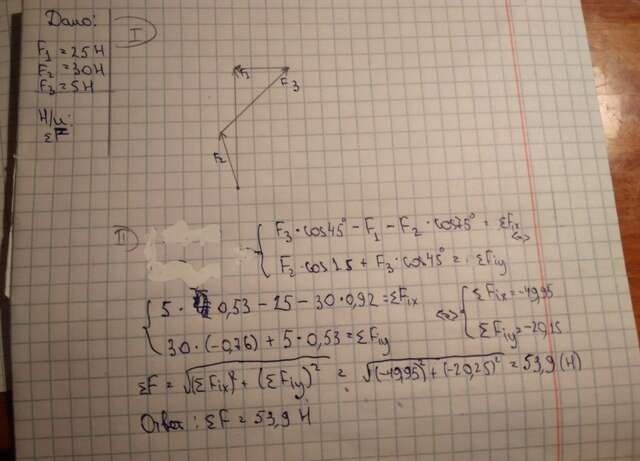 Дано:
I
F₁ = 25 Н
F₂ = 30 Н
F₃ = 5 Н
Н/и:
ΣF
F₁
F₃
F₂
II
F₃ · cos45° − F₁ − F₂ · cos75° = ΣFix <=>
F₂ · cos15 + F₃ · cos45° = ΣFiy
5 · 0,53 − 25 − 30 · 0,92 = ΣFix <=> ΣFix = −49,95
30 · (−0,76) + 5 · 0,53 = ΣFiy ΣFiy = −20,25
ΣF = √(ΣFix)² + (ΣFiy)² = √(−49,95)² + (−20,25)² = 53,9 (Н)
Ответ: ΣF = 53,9 Н